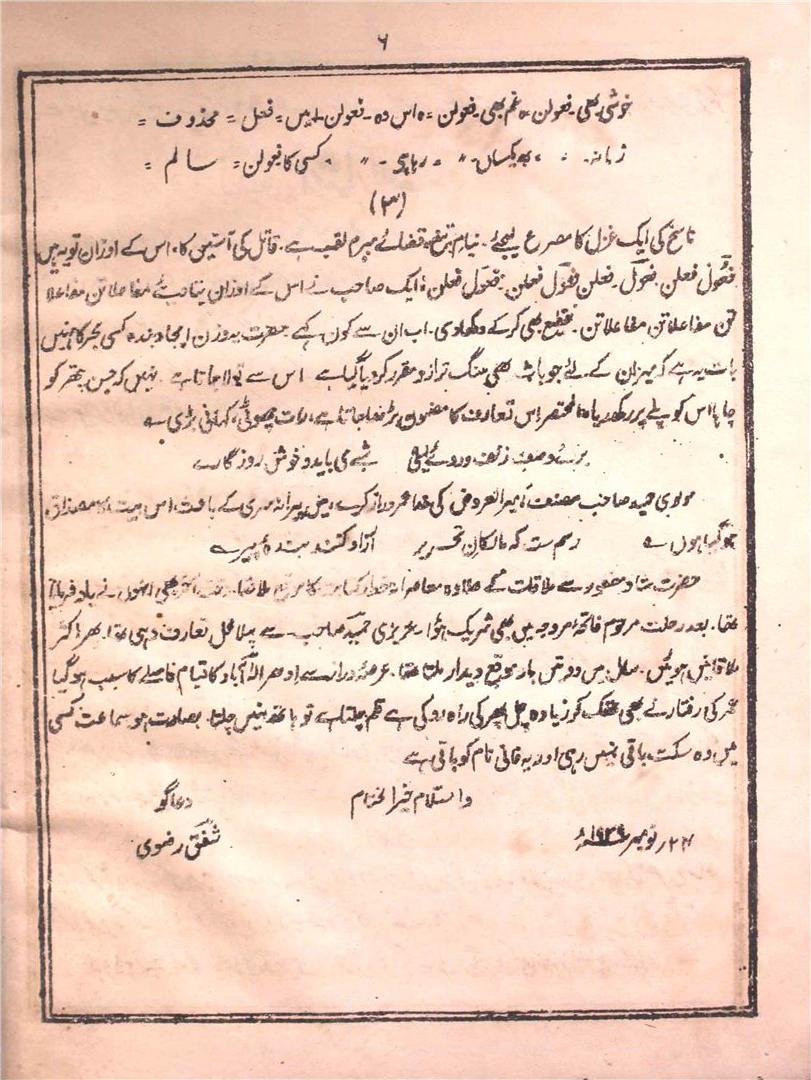 ۶
خوشی بھی۔ فعولن = غم بھی فعولن = ہ اس دہ۔ فعولن۔ میں = فعل = محذوف =
زمانہ۔ ۔ ۔ یکساں۔ " = رہا ہے۔ " ۔ کسی کا فعولن = سالم =
(۳)
ناسخ کی ایک غزل کا مصرع لیجئے۔ نیام تیغ قضائے مبرم لقب ہے۔ قاتل کی آستیں کا۔ اس کے اوزان تو یہ ہیں
فعول فعلن فعول۔ فعلن فعول فعلن فعول فعلن؛ ایک صاحب نے اس کے اوزان بتائے مفاعلاتن مفاعلا
تن مفاعلاتن مفاعلاتن۔ تقطیع بھی کر کے دکھا دی۔ اب ان سے کون کہے حضرت یہ وزن ایجاد بندہ کسی بحر کا نہیں
بات یہ ہے کہ میزان کے لئے جو باٹ بھی سنگ ترازو مقرر کر دیا گیا ہے اس سے تولا جاتا ہے نہیں کہ جس پتھر کو
چاہا اس کو پلے پر رکھ دیا۔ المختصر اس تعارف کا مضمون بڑھا جاتا ہے، رات چھوٹی، کہانی بڑی ہے
برائے وصف زلف و روئے لیلی شبے می باید و خوش روزگارے
مولوی حمید صاحب مصنف العروض کی خدا عمر دراز کرے، میں پیرانہ سری کے باعث، اس بیت کا مصداق
ہو گیا ہوں ؎ رسم ست کہ مالکان تحریر آزاد کنند بندۂ پیر ؎
حضرت شاد مغفور سے ملاقات کے علاوہ معاصرانہ خط و کتابت کا موقع ملا تھا۔ بھی انہوں نے یاد فرمایا
تھا۔ بعد رحلت مرحوم فاتحہ میں بھی شریک ہوا۔ عزیزی حمید صاحب سے پہلا محل تعارف وہی تھا۔ پھر اکثر
ملاقاتیں ہوئیں۔ سال میں دو تین بار موقع دیدار ملتا تھا۔ عرصہ دراز سے ادھر الہ آباد کا قیام فاصلے کا سبب ہو گیا
عمر کی رفتار نے بھی تھک کر زیادہ چل پھر کی راہ روکی ہے قلم چلتا ہے تو ہاتھ نہیں چلتا۔ بصارت ہو سماعت کسی
میں وہ سکت باقی نہیں رہی اور یہ فانی نام کو باقی ہے
والسلام خیر الختام
دعاگو
۲۴ نومبر ۱۹۳۹ء شفق رضوی